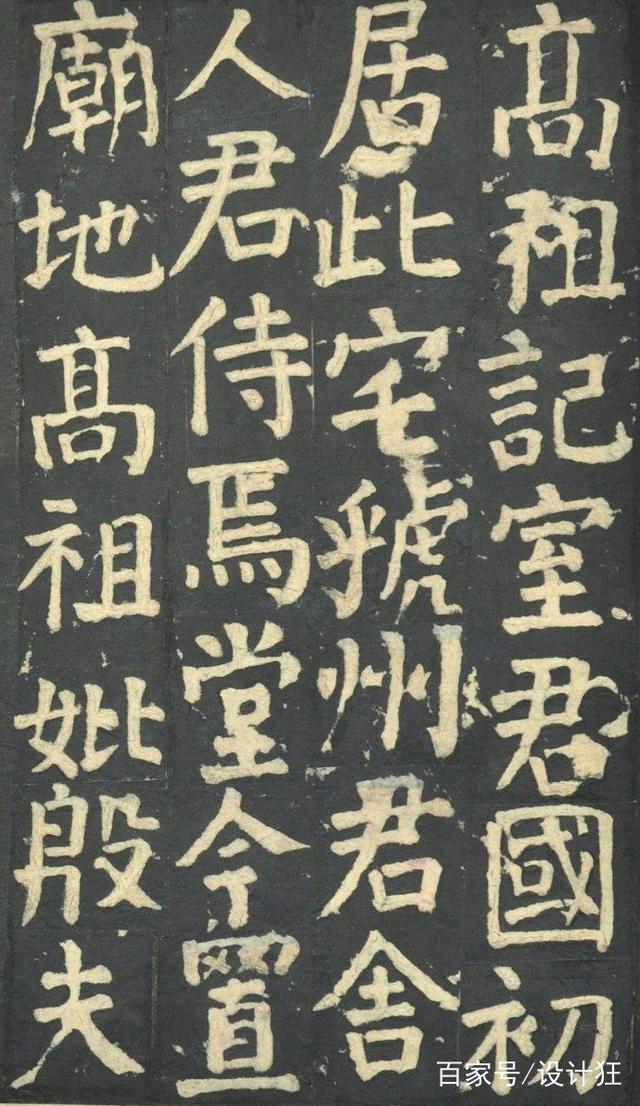 高祖記室君國初
居此宅虢州君舍
人君侍焉堂今置
廟地高祖妣殷夫
百家号/设计狂